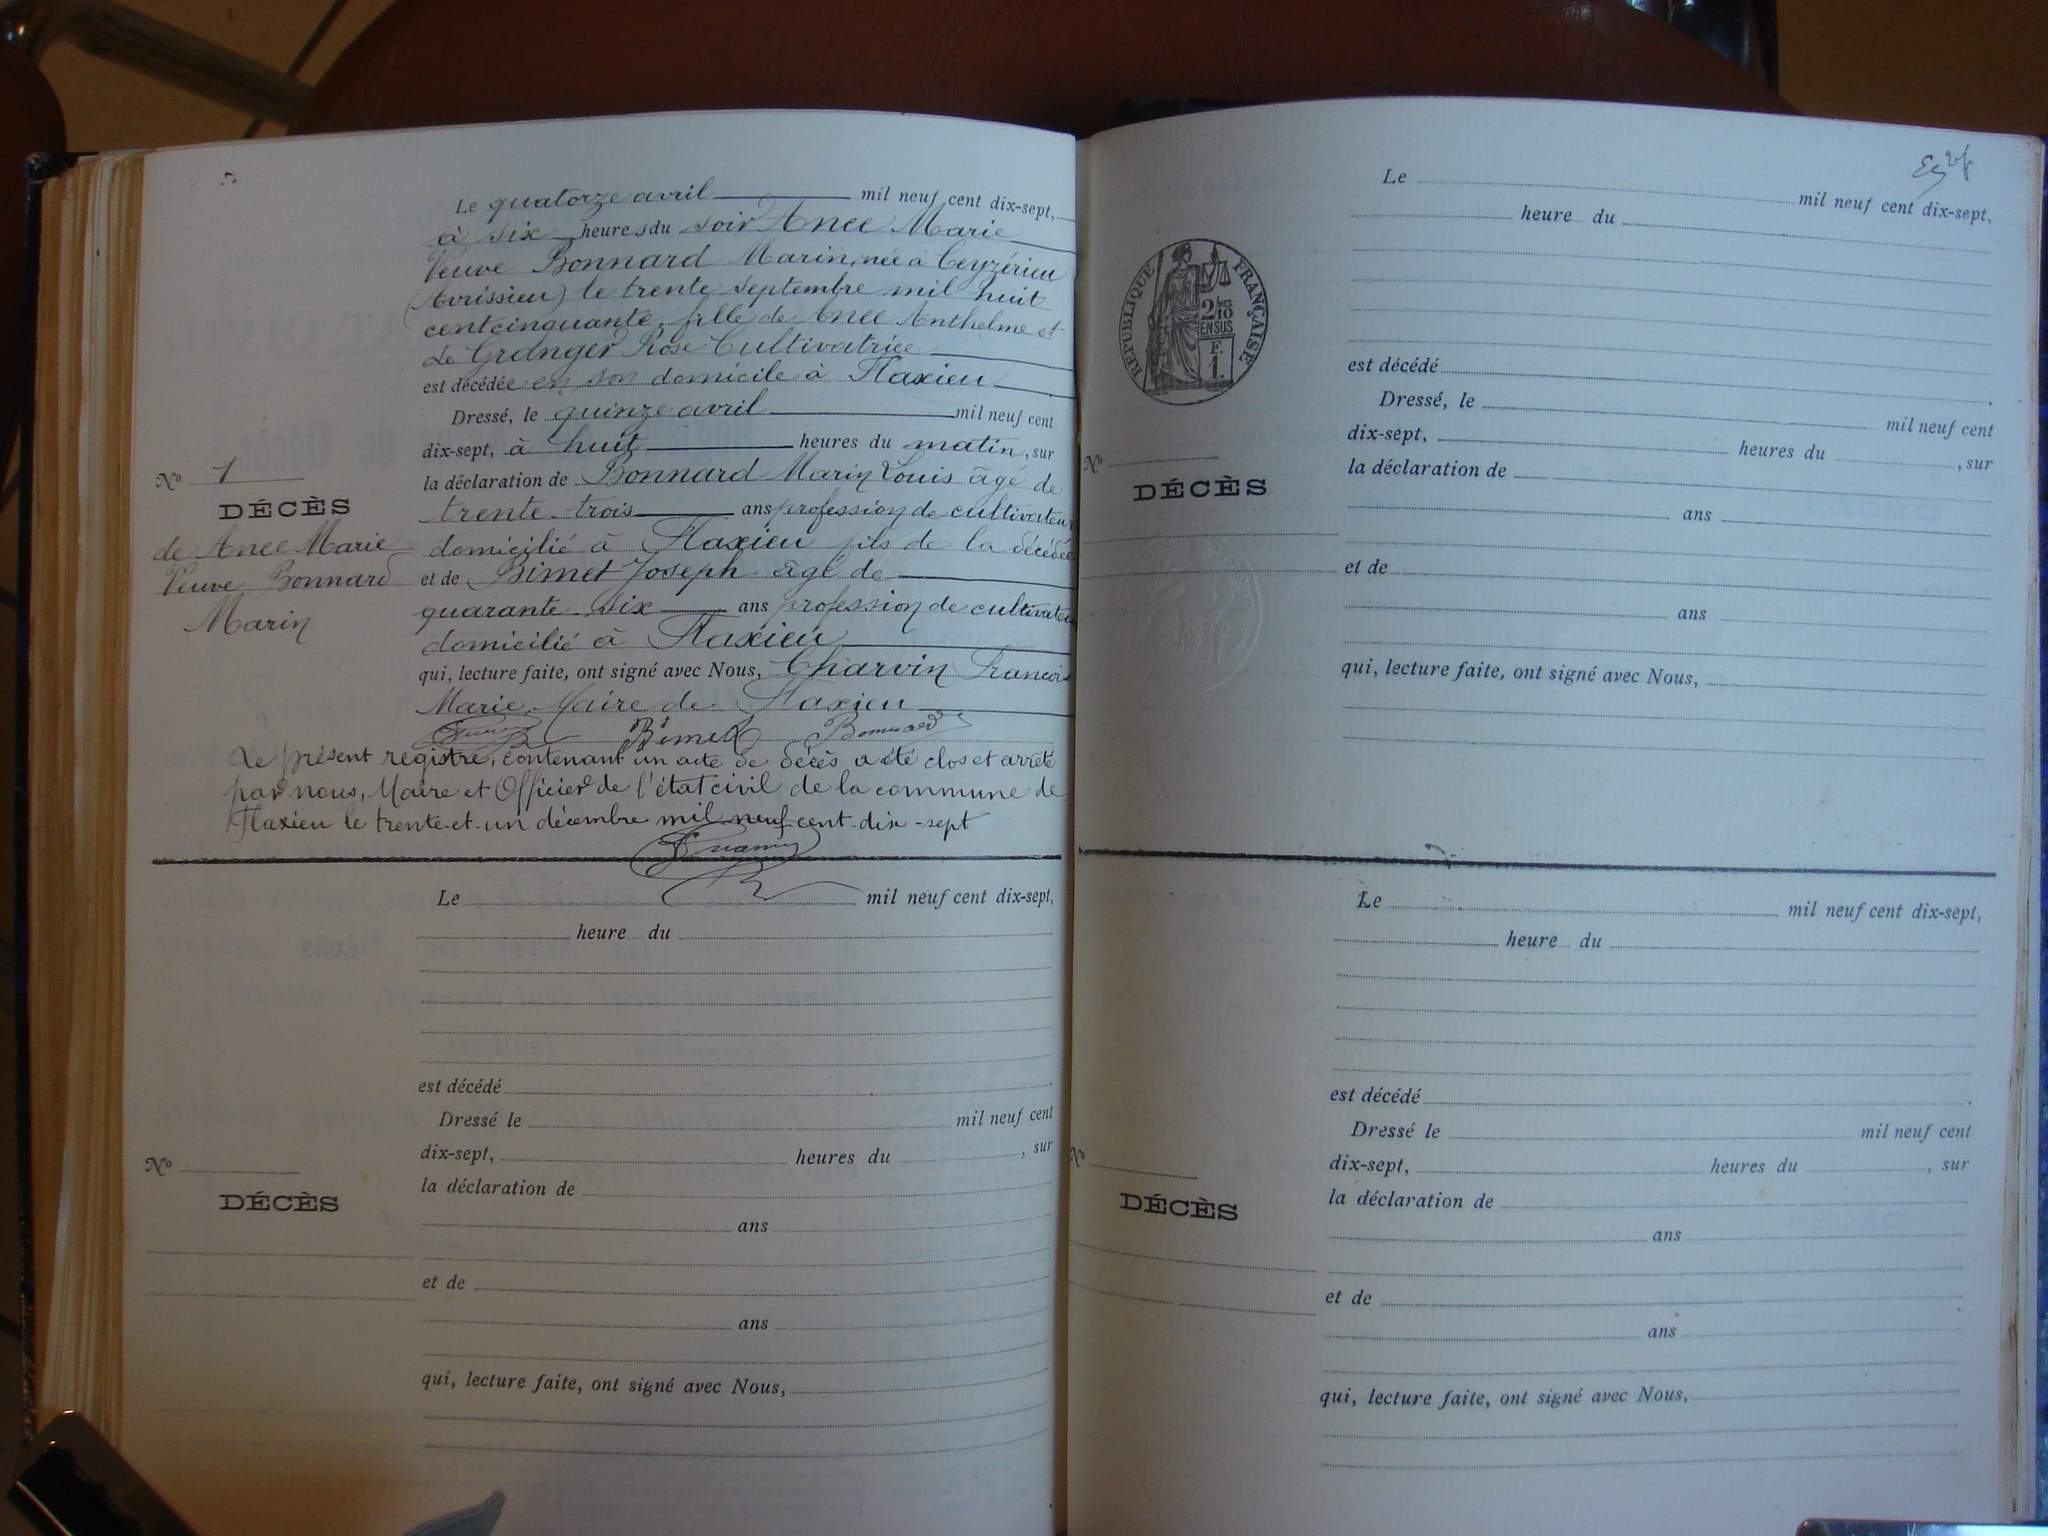 Le quatorze avril mil neuf cent dix-sept,
à six heures du soir Ancé Marie
Veuve Bonnard Marin, née à Ceyzérieu
(Avrissieu) le trente septembre mil huit
cent cinquante, fille de Ancé Anthelme et
de Granger Rose Cultivatrice
est décédée en son domicile à Flaxieu
Dressé, le quinze avril mil neuf cent
dix-sept, à huit heures du matin, sur
la déclaration de Bonnard Marin Louis âgé de
trente-trois ans profession de cultivateur
domicilié à Flaxieu fils de la décédée
et de Bimet Joseph âgé de
quarante six ans profession de cultivateur
domicilié à Flaxieu
qui, lecture faite, ont signé avec Nous, Charvin François
Marie, Maire de Flaxieu
Bimet Bonnard
No 1
DÉCÈS
de Ancé Marie
Veuve Bonnard
Marin
Le présent registre, contenant un acte de décès a été clos et arrêté
par nous, Maire et Officier de l'état civil de la commune de
Flaxieu le trente et un décembre mil neuf cent dix-sept
Le mil neuf cent dix-sept,
heure du
est décédé
Dressé le mil neuf cent
dix-sept, heures du , sur
la déclaration de
ans
et de
ans
qui, lecture faite, ont signé avec Nous,
No
DÉCÈS
Le mil neuf cent dix-sept,
heure du
est décédé
Dressé, le mil neuf cent
dix-sept, heures du , sur
la déclaration de
ans
et de
ans
qui, lecture faite, ont signé avec Nous,
RÉPUBLIQUE FRANÇAISE
2/10
EN SUS
F.
1.
No
DÉCÈS
Le mil neuf cent dix-sept,
heure du
est décédé
Dressé le mil neuf cent
dix-sept, heures du , sur
la déclaration de
ans
et de
ans
qui, lecture faite, ont signé avec Nous,
No
DÉCÈS